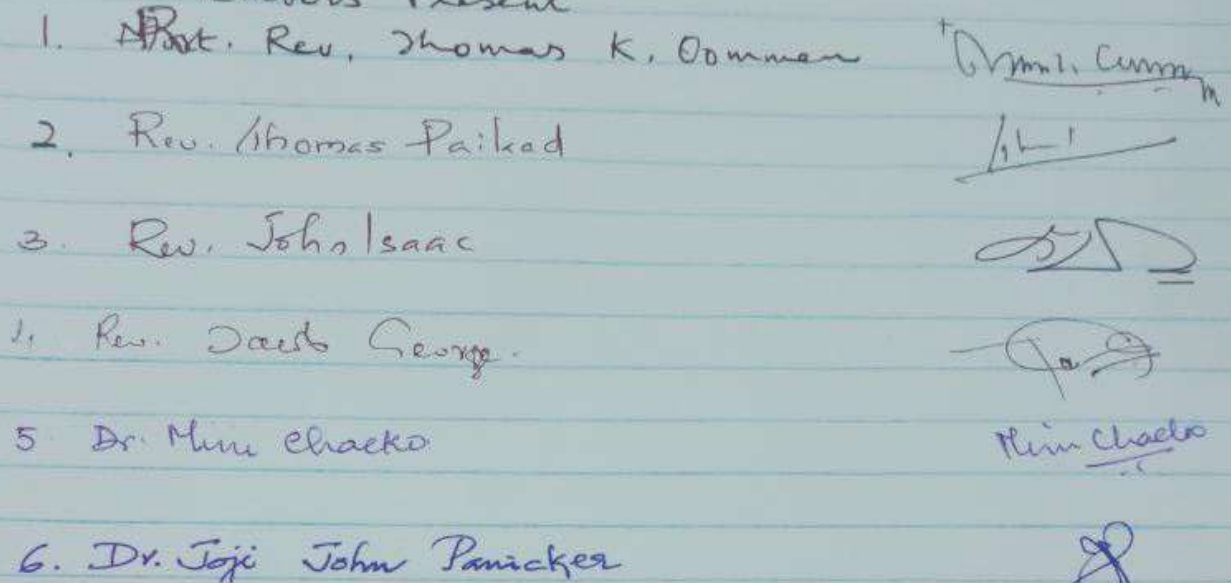 Present
1. Rt. Rev. Thomas K. Oommen
2. Rev. Thomas Paikad
3. Rev. John Isaac
Rev. Jacob George.
5 Dr. Mini Chacko Mini Chacko
6. Dr. Joji John Panicker